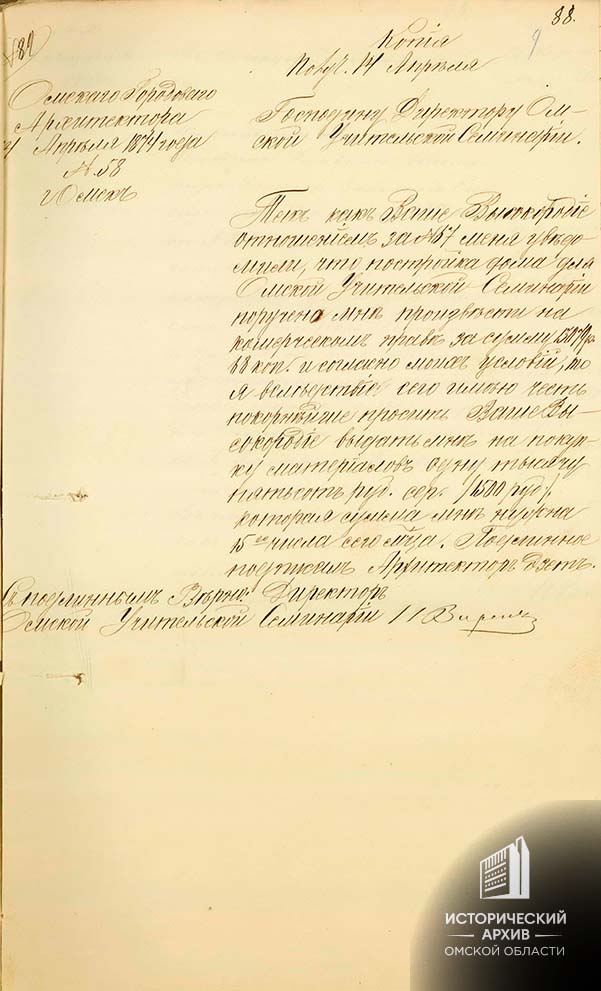 88.
9
82
Копія
Получ. 14 Апрѣля
Омскаго Городоваго
Архитектора
Апрѣля 1874 года
№ 58
г. Омскъ
Господину Директору Ом-
ской Учительской Семинаріи.
Такъ какъ Ваше Высокородіе
отношеніемъ за №67 меня увѣдо-
мили, что постройка дома для
Омской Учительской Семинаріи
поручена мнѣ произвѣсти на
комерческомъ правѣ за сумму
68 коп. и согласно моихъ условій, то
я вслѣдствіе сего имѣю честь
покорнѣйше просить Ваше Вы-
сокородіе выдать мнѣ на покуп-
ку матеріаловъ одну тысячу
пятьсотъ руб. сер. (1500 руб),
которая сумма мнѣ нужна
15го числа сего м̃ца. Подлинное
подписалъ Архитекторъ Эзетъ.
Съ подлиннымъ Вѣрно: Директоръ
Омской Учительской Семинаріи
ИСТОРИЧЕСКИЙ
АРХИВ
ОМСКОЙ ОБЛАСТИ